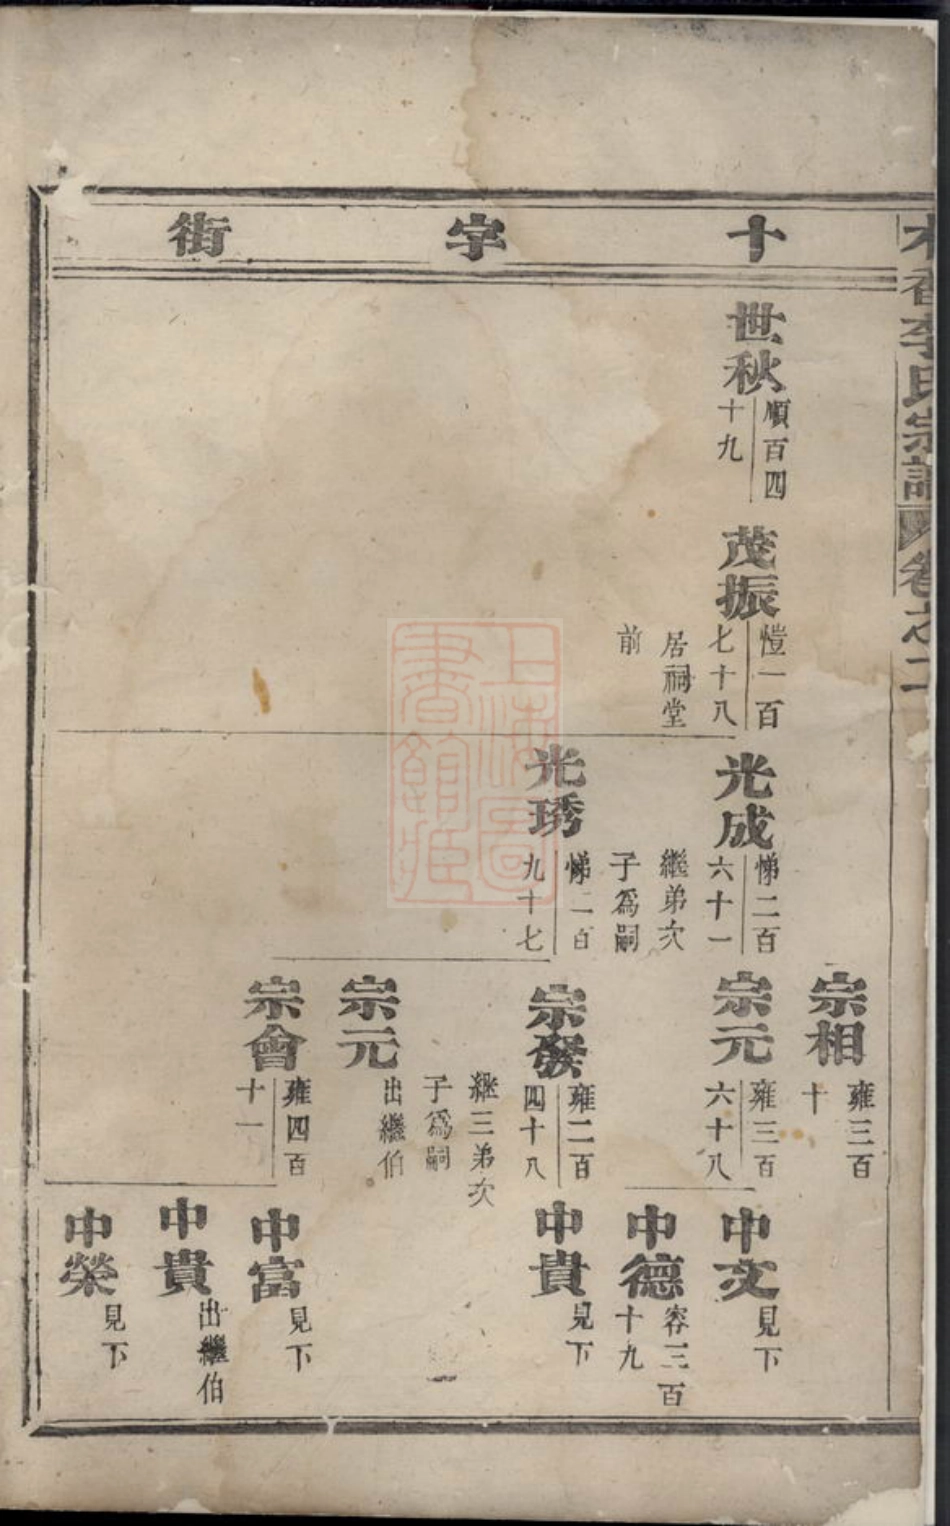 十字街
李氏宗譜
卷之二
世秋
順百四
十九
茂振
愷一百
七十八
居祠堂
前
光成
悌二百
六十一
繼弟次
子為嗣
光琇
悌二百
九十七
宗相
雍三百
十
宗元
雍三百
六十八
宗發
雍二百
四十八
繼三弟次
子為嗣
宗元
出繼伯
宗會
雍四百
十一
中文
見下
中德
容三百
十九
中貴
見下
中富
見下
中貴
出繼伯
中榮
見下
上海圖
書館藏